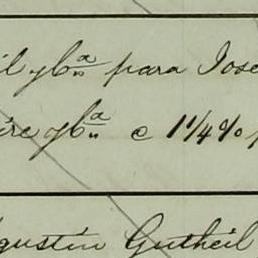 il y Cª para Jose
ire y Cª e 1 1/4 %
gustin Gutheil